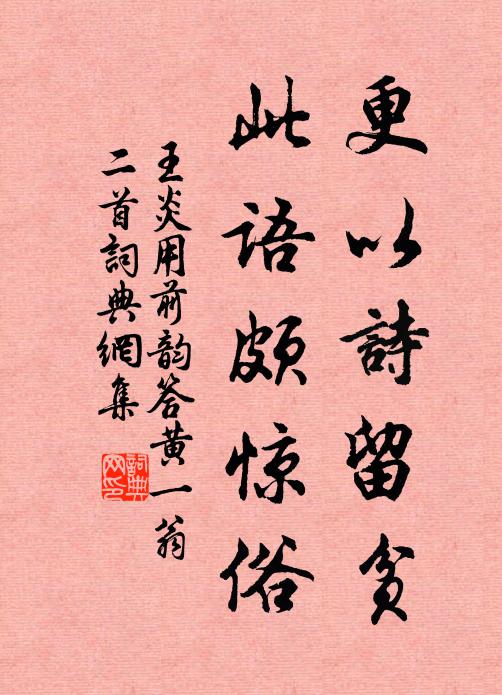 更以詩留贫
此语頗惊俗
王炎用前韵答黄一翁
二首詞典網集
詞典网印